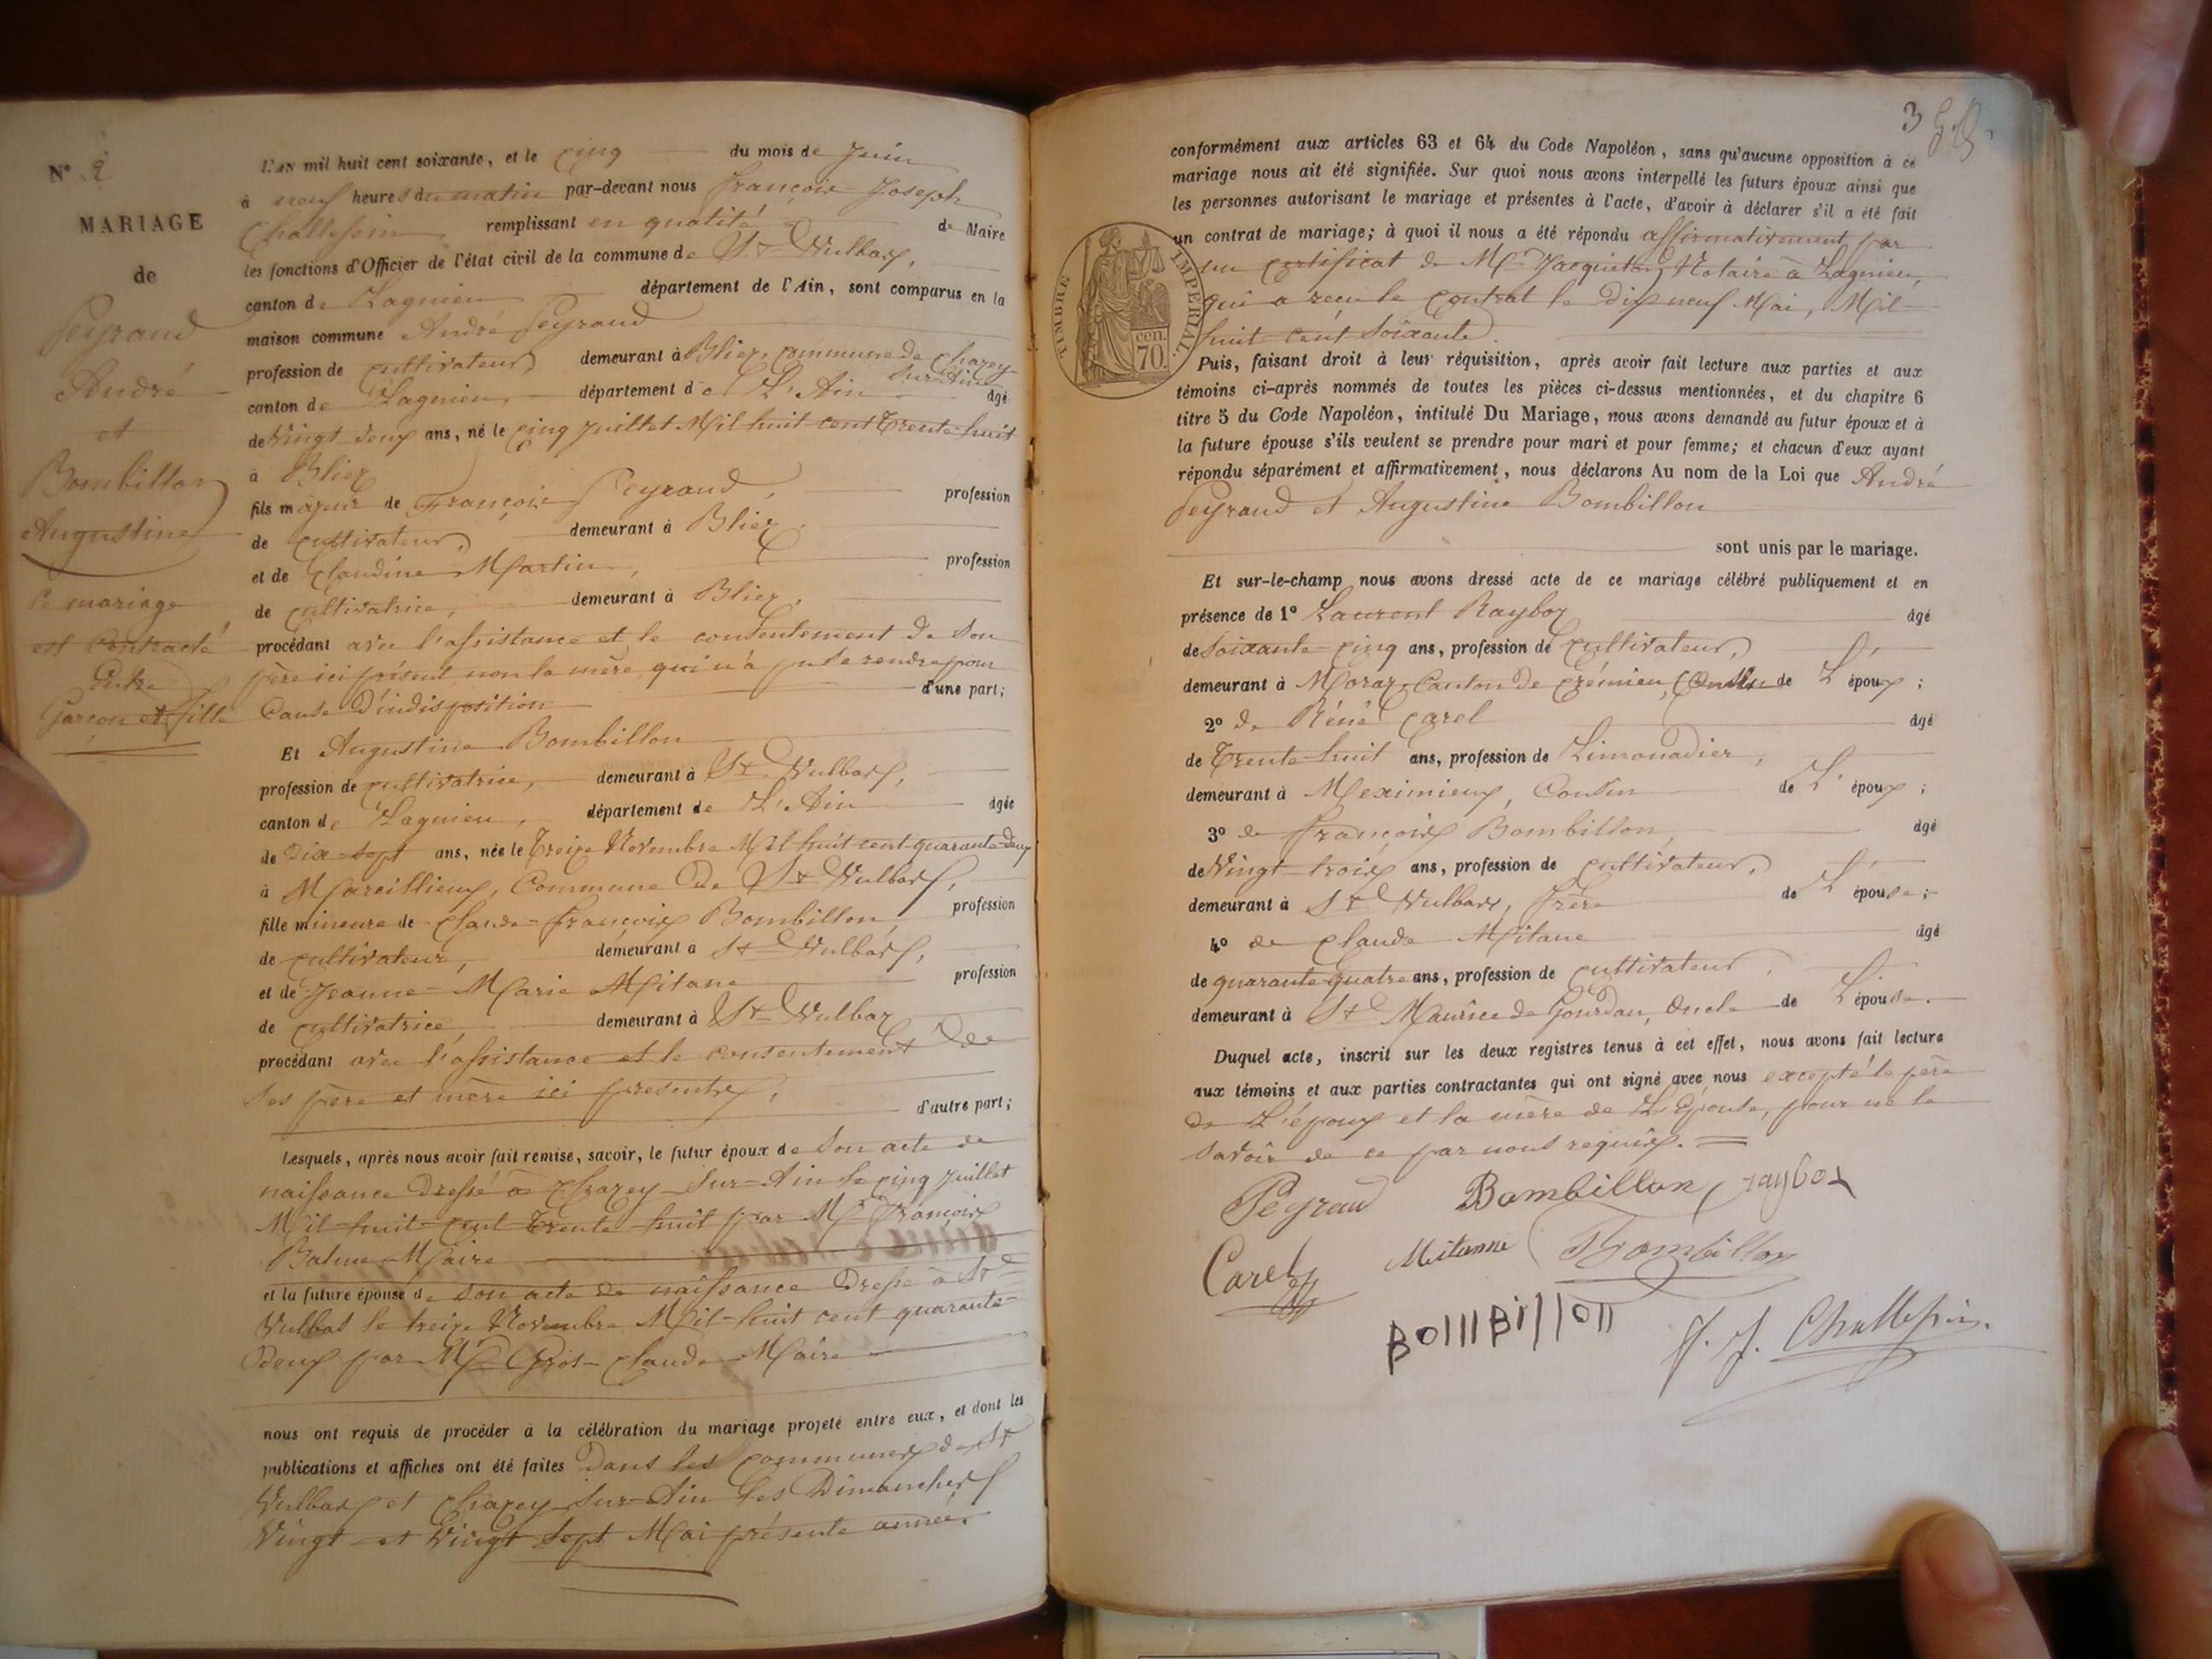 N° 2
MARIAGE
de
Peyraud
André
et
Bombillon
Augustine
Ce mariage
est contracté
Entre
Garçon et fille
L'AN mil huit cent soixante, et le cinq du mois de Juin
à neuf heures du matin par-devant nous François Joseph
Challessin remplissant en qualité de Maire
les fonctions d'Officier de l'état civil de la commune de St Vulbas,
canton de Lagnieu département de l'Ain, sont comparus en la
maison commune André Peyraud
profession de cultivateur demeurant à Blier, commune de Charey-
sur-Ain
canton de Lagnieu, département de L'Ain âgé
de Vingt deux ans, né le cinq juillet Mil huit cent trente-huit
à Blier
fils majeur de François Peyraud, profession
de cultivateur, demeurant à Blier,
et de Claudine Martin, profession
de cultivatrice, demeurant à Blier,
procédant avec l'assistance et le consentement de son
père ici présent, non la mère, qui n'a pu se rendre pour
Cause d'indisposition d'une part;
Et Augustine Bombillon
profession de cultivatrice, demeurant à St Vulbas,
canton de Lagnieu, département de L'Ain âgée
de Dix-sept ans, née le treize Novembre Mil huit cent quarante-deux
à Marcillieux, Commune de St Vulbas,
fille mineure de Claude-François Bombillon, profession
de cultivateur, demeurant à St Vulbas,
et de Jeanne-Marie Mitane profession
de cultivatrice, demeurant à St Vulbas
procédant avec l'assistance et le consentement de
ses père et mère ici présents, d'autre part;
Lesquels, après nous avoir fait remise, savoir, le futur époux de son acte de
naissance dressé à Charey-sur-Ain le cinq juillet
Mil-huit-cent-trente-huit par Mr François
Balme Maire
et la future épouse de son acte de naissance Dressé à St
Vulbas le treize Novembre Mil-huit cent quarante-
deux par Mr Gros-Claude Maire
nous ont requis de procéder à la célébration du mariage projeté entre eux, et dont les
publications et affiches ont été faites Dans les communes de St
Vulbas et Charey-sur-Ain les Dimanches
Vingt et Vingt Sept Mai présente année.
3
conformément aux articles 63 et 64 du Code Napoléon, sans qu'aucune opposition à ce
mariage nous ait été signifiée. Sur quoi nous avons interpellé les futurs époux ainsi que
les personnes autorisant le mariage et présentes à l'acte, d'avoir à déclarer s'il a été fait
un contrat de mariage; à quoi il nous a été répondu affirmativement, par
un certificat de Me Jacquieton Notaire à Lagnieu,
qui a recu le contrat le Dix neuf Mai, Mil-
huit cent soixante.
TIMBRE IMPERIAL.
cen.
70.
Puis, faisant droit à leur réquisition, après avoir fait lecture aux parties et aux
témoins ci-après nommés de toutes les pièces ci-dessus mentionnées, et du chapitre 6
titre 5 du Code Napoléon, intitulé Du Mariage, nous avons demandé au futur époux et à
la future épouse s'ils veulent se prendre pour mari et pour femme; et chacun d'eux ayant
répondu séparément et affirmativement, nous déclarons Au nom de la Loi que André
Peyraud et Augustine Bombillon
sont unis par le mariage.
Et sur-le-champ nous avons dressé acte de ce mariage célébré publiquement et en
présence de 1° Laurent Rayboz âgé
de Soixante-cinq ans, profession de cultivateur,
demeurant à Moraz, Canton de Crémieu, de L'époux;
2° de Réné Carel âgé
de Trente-huit ans, profession de Limonadier,
demeurant à Meximieux, Cousin de L'époux;
3° de François Bombillon, âgé
de Vingt-trois ans, profession de cultivateur,
demeurant à St Vulbas, frère de L'épouse;
4° de Claude Mitane âgé
de quarante-quatre ans, profession de cultivateur,
demeurant à St Maurice de Gourdan, oncle de L'épouse.
Duquel acte, inscrit sur les deux registres tenus à cet effet, nous avons fait lecture
aux témoins et aux parties contractantes qui ont signé avec nous excepté le père
de L'époux et la mère de L'épouse, pour ne le
savoir de ce par nous requis.
Peyraud Bombillon Rayboz
Carel Mitanne Bombillon
BOMBillon F. J. Challessin.